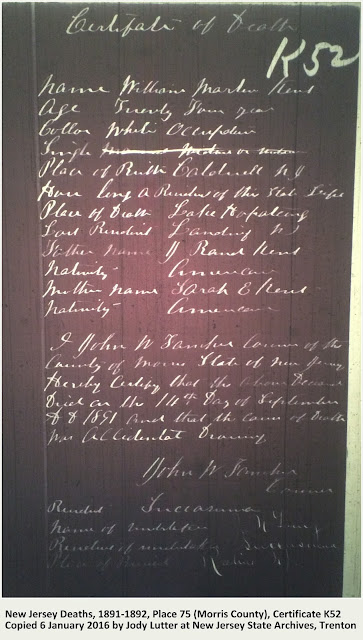 Certificate of Death
K52
Name William Martin Kent
Age Twenty Four year
Collor White Occupation
Single Married Widow or Widower
Place of Birth Caldwell NJ
How long a Resident of this State Life
Place of Death Lake Hopatcong
Last Residence Landing NJ
Father name J Rand Kent
Nativity American
Mother name Sarah E Kent
Nativity American
I John W Coroner of the
County of Morris State of New Jersey
Hereby Certify that the above Deceased
Died on the 14th Day of September
AD 1891 and that the cause of Death
was Accidental Drowning
John W
Coroner
Resident Succasunna
Name of undertaker
Residence of undertaker Succasunna
Place of Burial
New Jersey Deaths, 1891-1892, Place 75 (Morris County), Certificate K52
Copied 6 January 2016 by Jody Lutter at New Jersey State Archives, Trenton